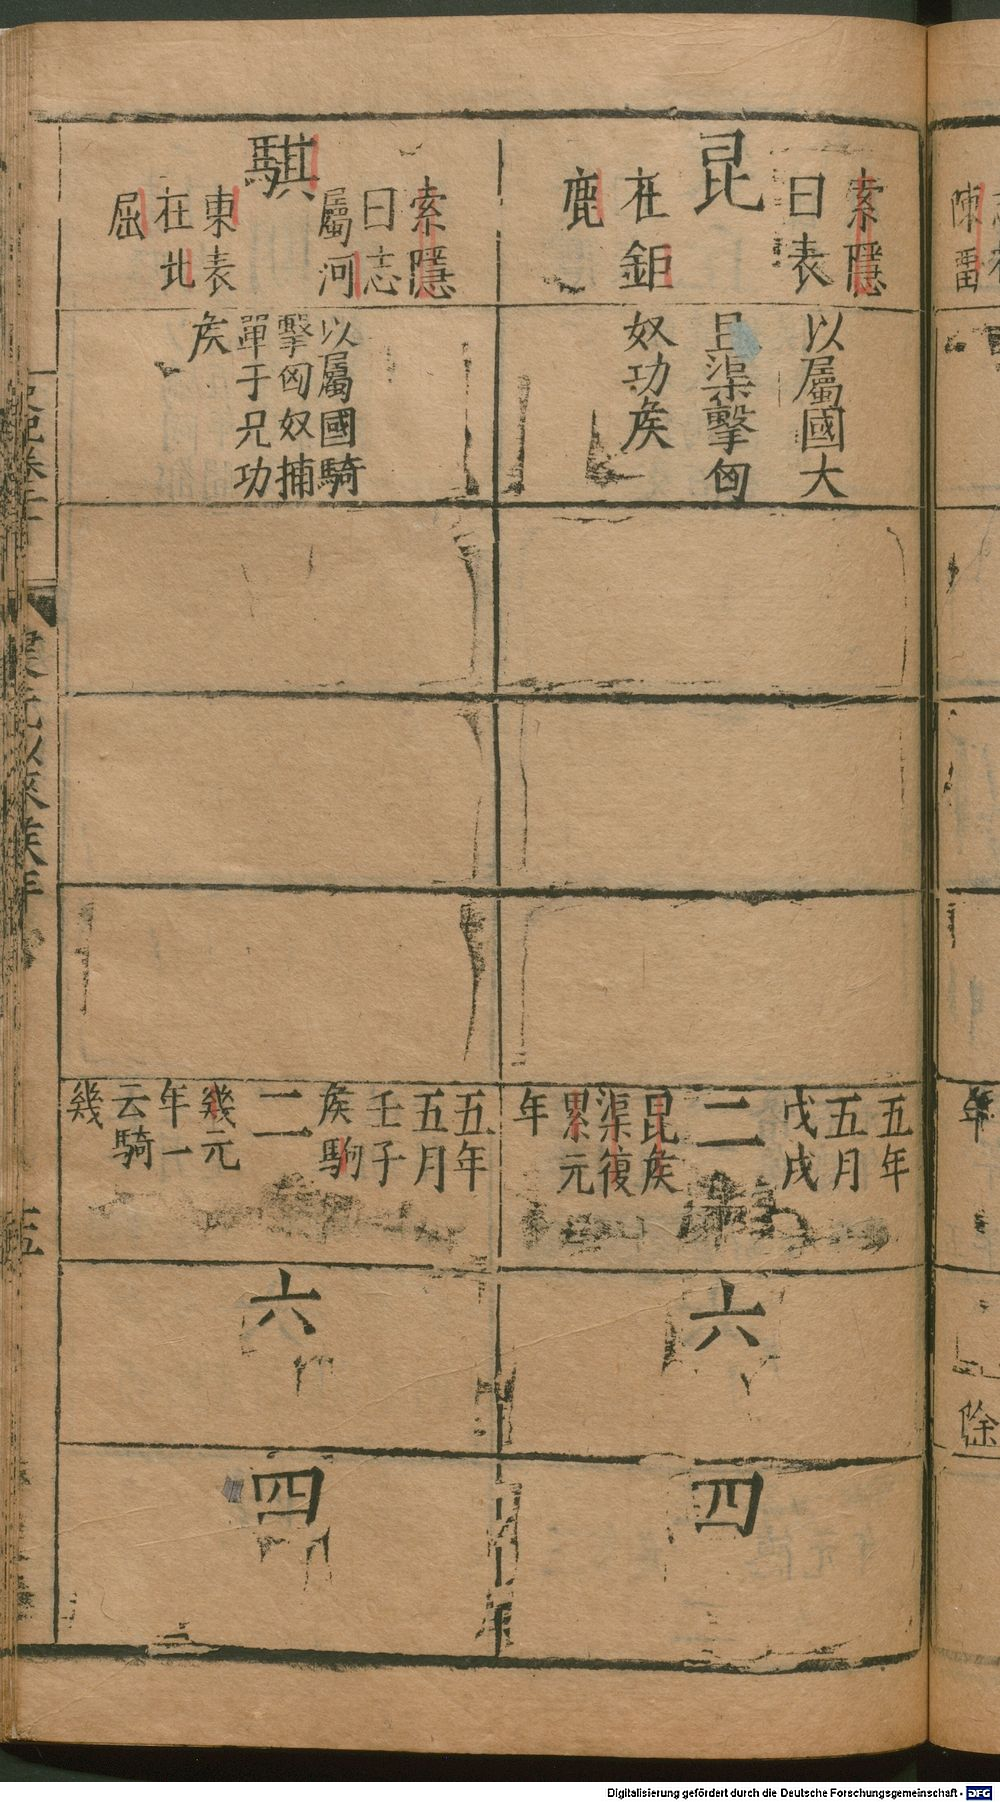 索隱
曰表
昆
在鉅
鹿
以屬國大
且渠擊匈
奴功矦
五年
五月
戊戌
二
昆矦
渠復
累元
年
六
四
索隱
曰志
屬河
騏
東表
在北
屈
以屬國騎
擊匈奴捕
單于兄功
矦
五年
五月
壬子
矦駒
二
幾元
年一
云騎
幾
六
四
以來矦年
十五
陳留
年
除
Digitalisierung gefördert durch die Deutsche Forschungsgemeinschaft - DFG